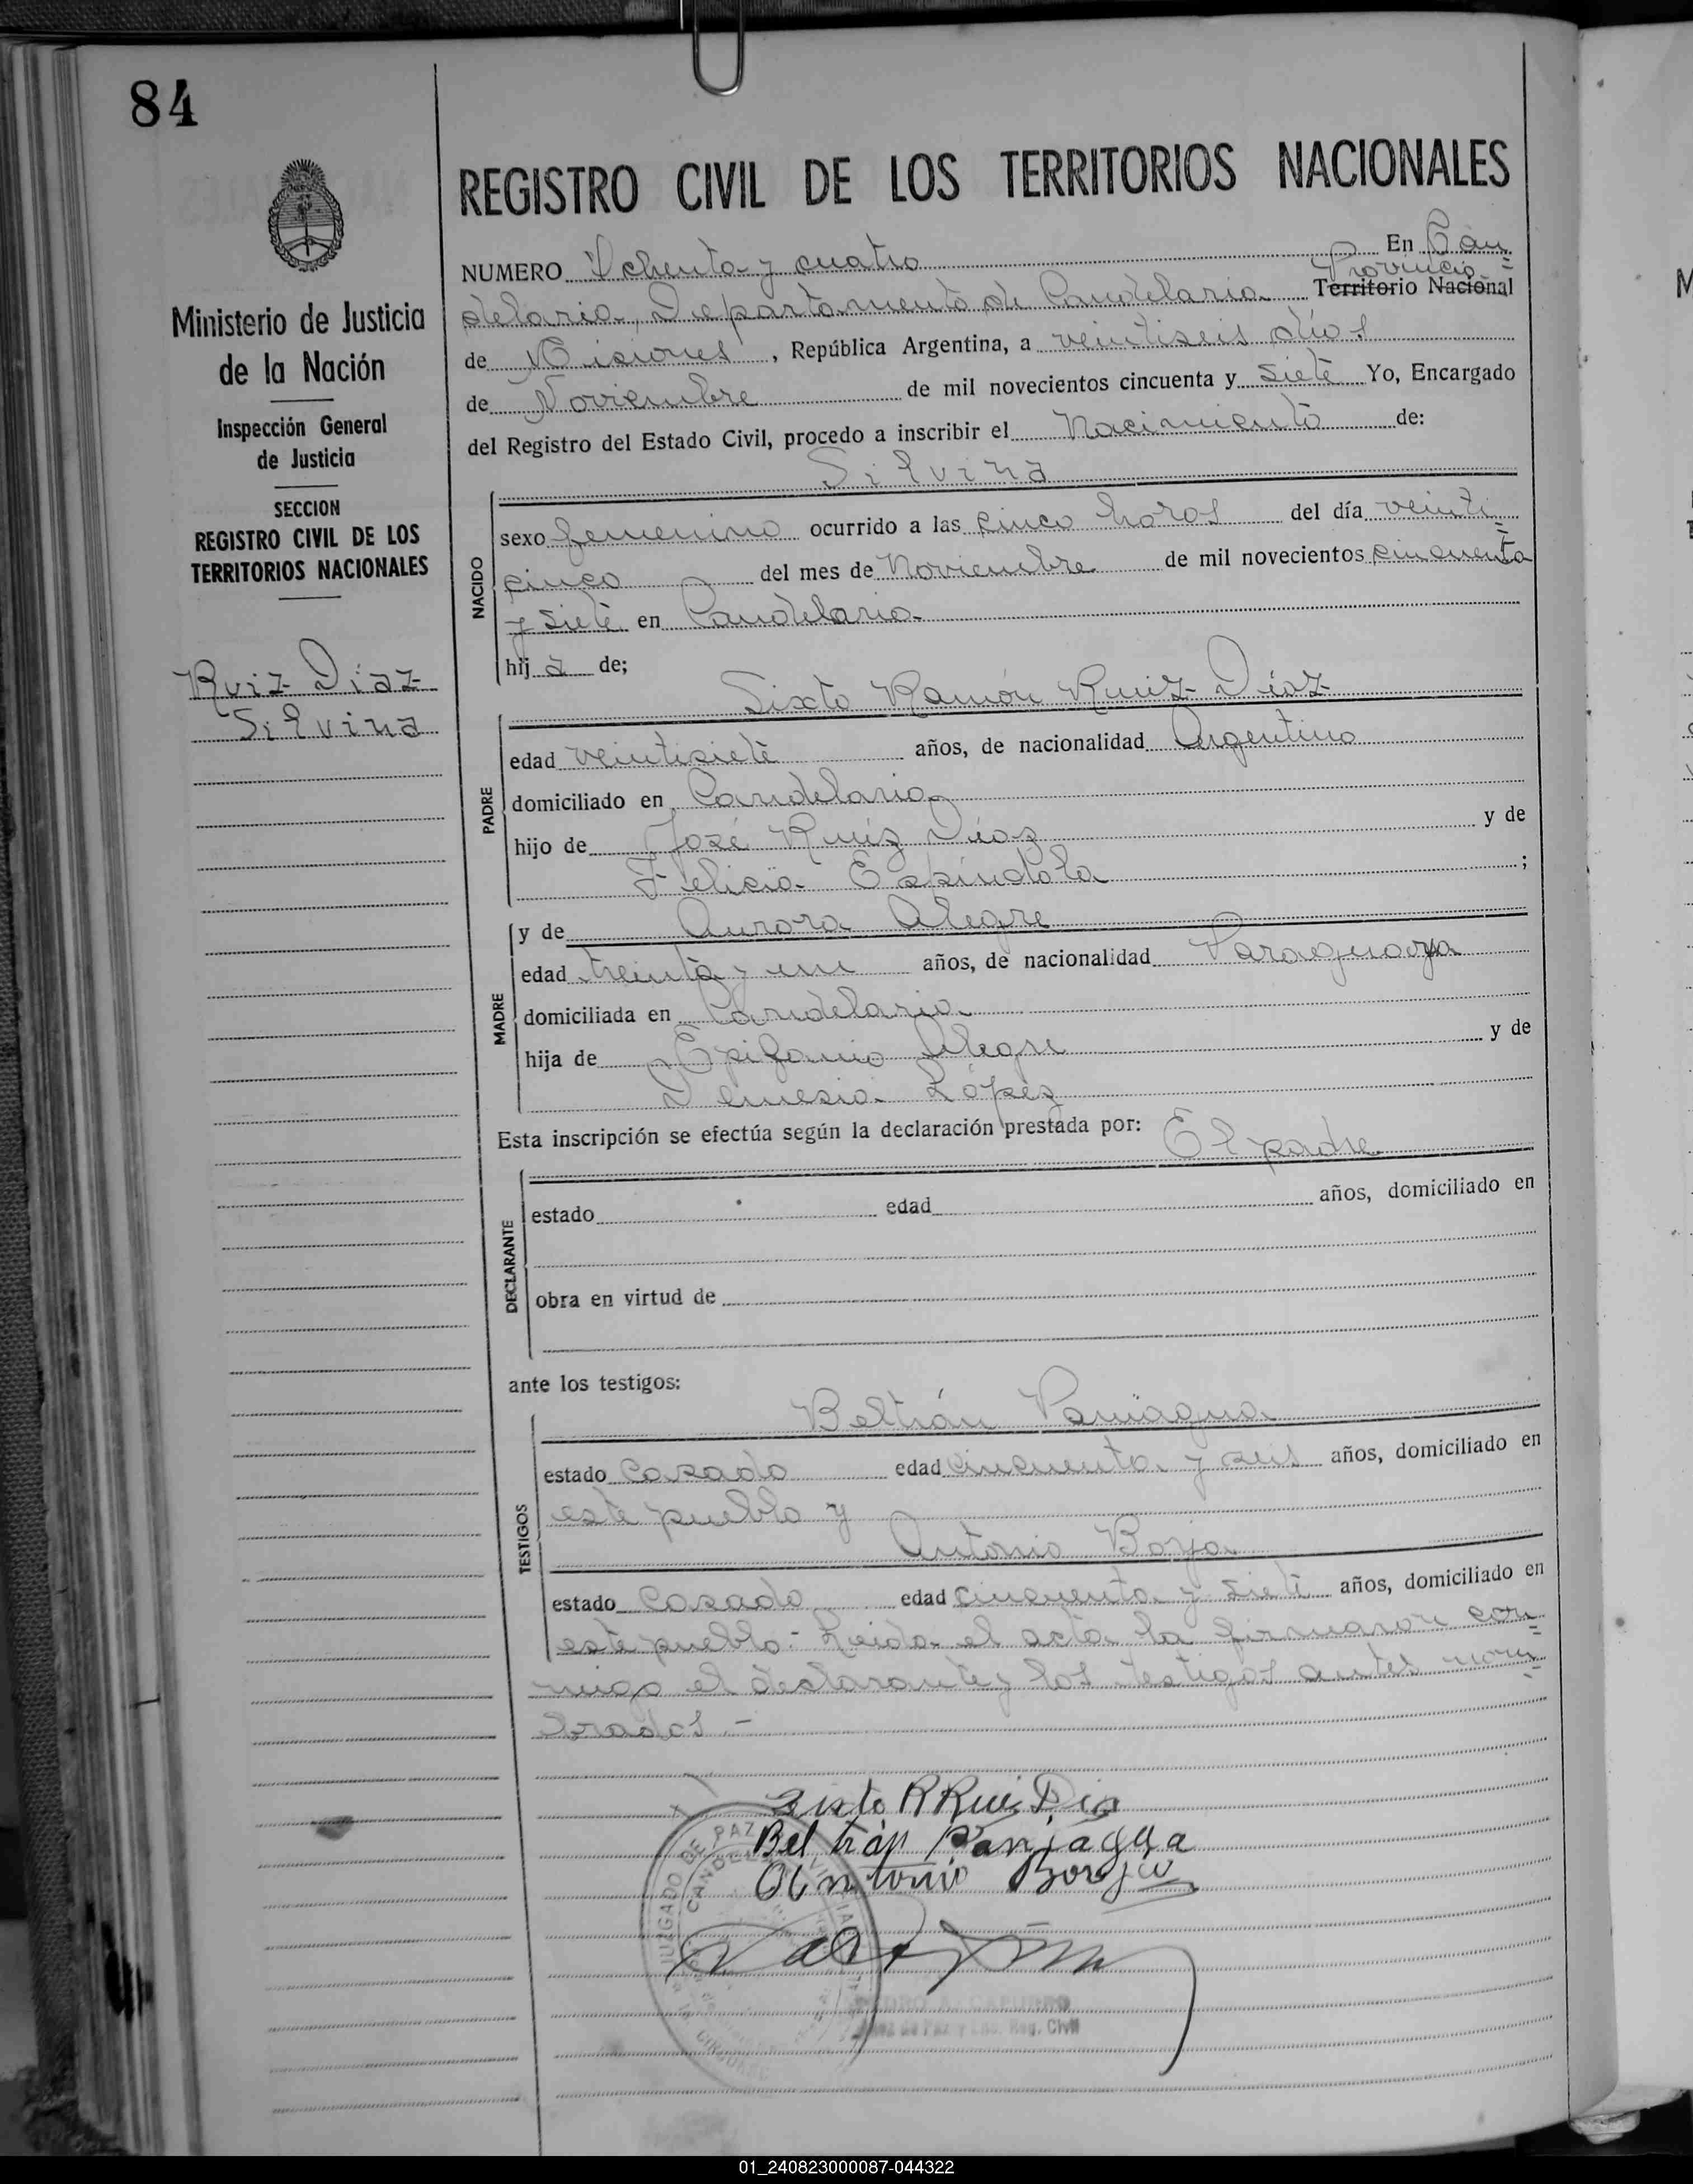 84
REGISTRO CIVIL DE LOS TERRITORIOS NACIONALES
NUMERO Ochenta y cuatro En Can=
Provincia
delaria, Departamento de Candelaria Territorio Nacional
de Misiones, República Argentina, a veintiseis días
de Noviembre de mil novecientos cincuenta y siete Yo, Encargado
del Registro del Estado Civil, procedo a inscribir el Nacimiento de:
Silvina
Ministerio de Justicia
de la Nación
Inspección General
de Justicia
SECCION
REGISTRO CIVIL DE LOS
TERRITORIOS NACIONALES
Ruiz Diaz
Silvina
NACIDO
sexo femenino ocurrido a las cinco horas del día veinti=
cinco del mes de Noviembre de mil novecientos cincuenta
y siete en Candelaria
hija de;
Sixto Ramón Ruiz Díaz
PADRE
edad veintisiete años, de nacionalidad Argentino
domiciliado en Candelaria
hijo de José Ruiz Díaz y de
Felicia Espíndola ;
MADRE
y de Aurora Alegre
edad treinta y un años, de nacionalidad Paraguaya
domiciliada en Candelaria
hija de Epifanio Alegre y de
Nemesia López
Esta inscripción se efectúa según la declaración prestada por: El padre
DECLARANTE
estado edad años, domiciliado en
obra en virtud de
ante los testigos:
Beltrán Paniagua
TESTIGOS
estado Casado edad cincuenta y seis años, domiciliado en
este pueblo y
Antonio Borja
estado Casado edad cincuenta y siete años, domiciliado en
este pueblo.- Leida el acta la firmaron con=
migo el declarante y los testigos antes nom=
brados.-
Sixto R Ruiz Diaz
Beltrán Paniagua
Antonio Borja
JUZGADO DE PAZ
Juez de Paz y Enc. Reg. Civil
01_240823000087-044322